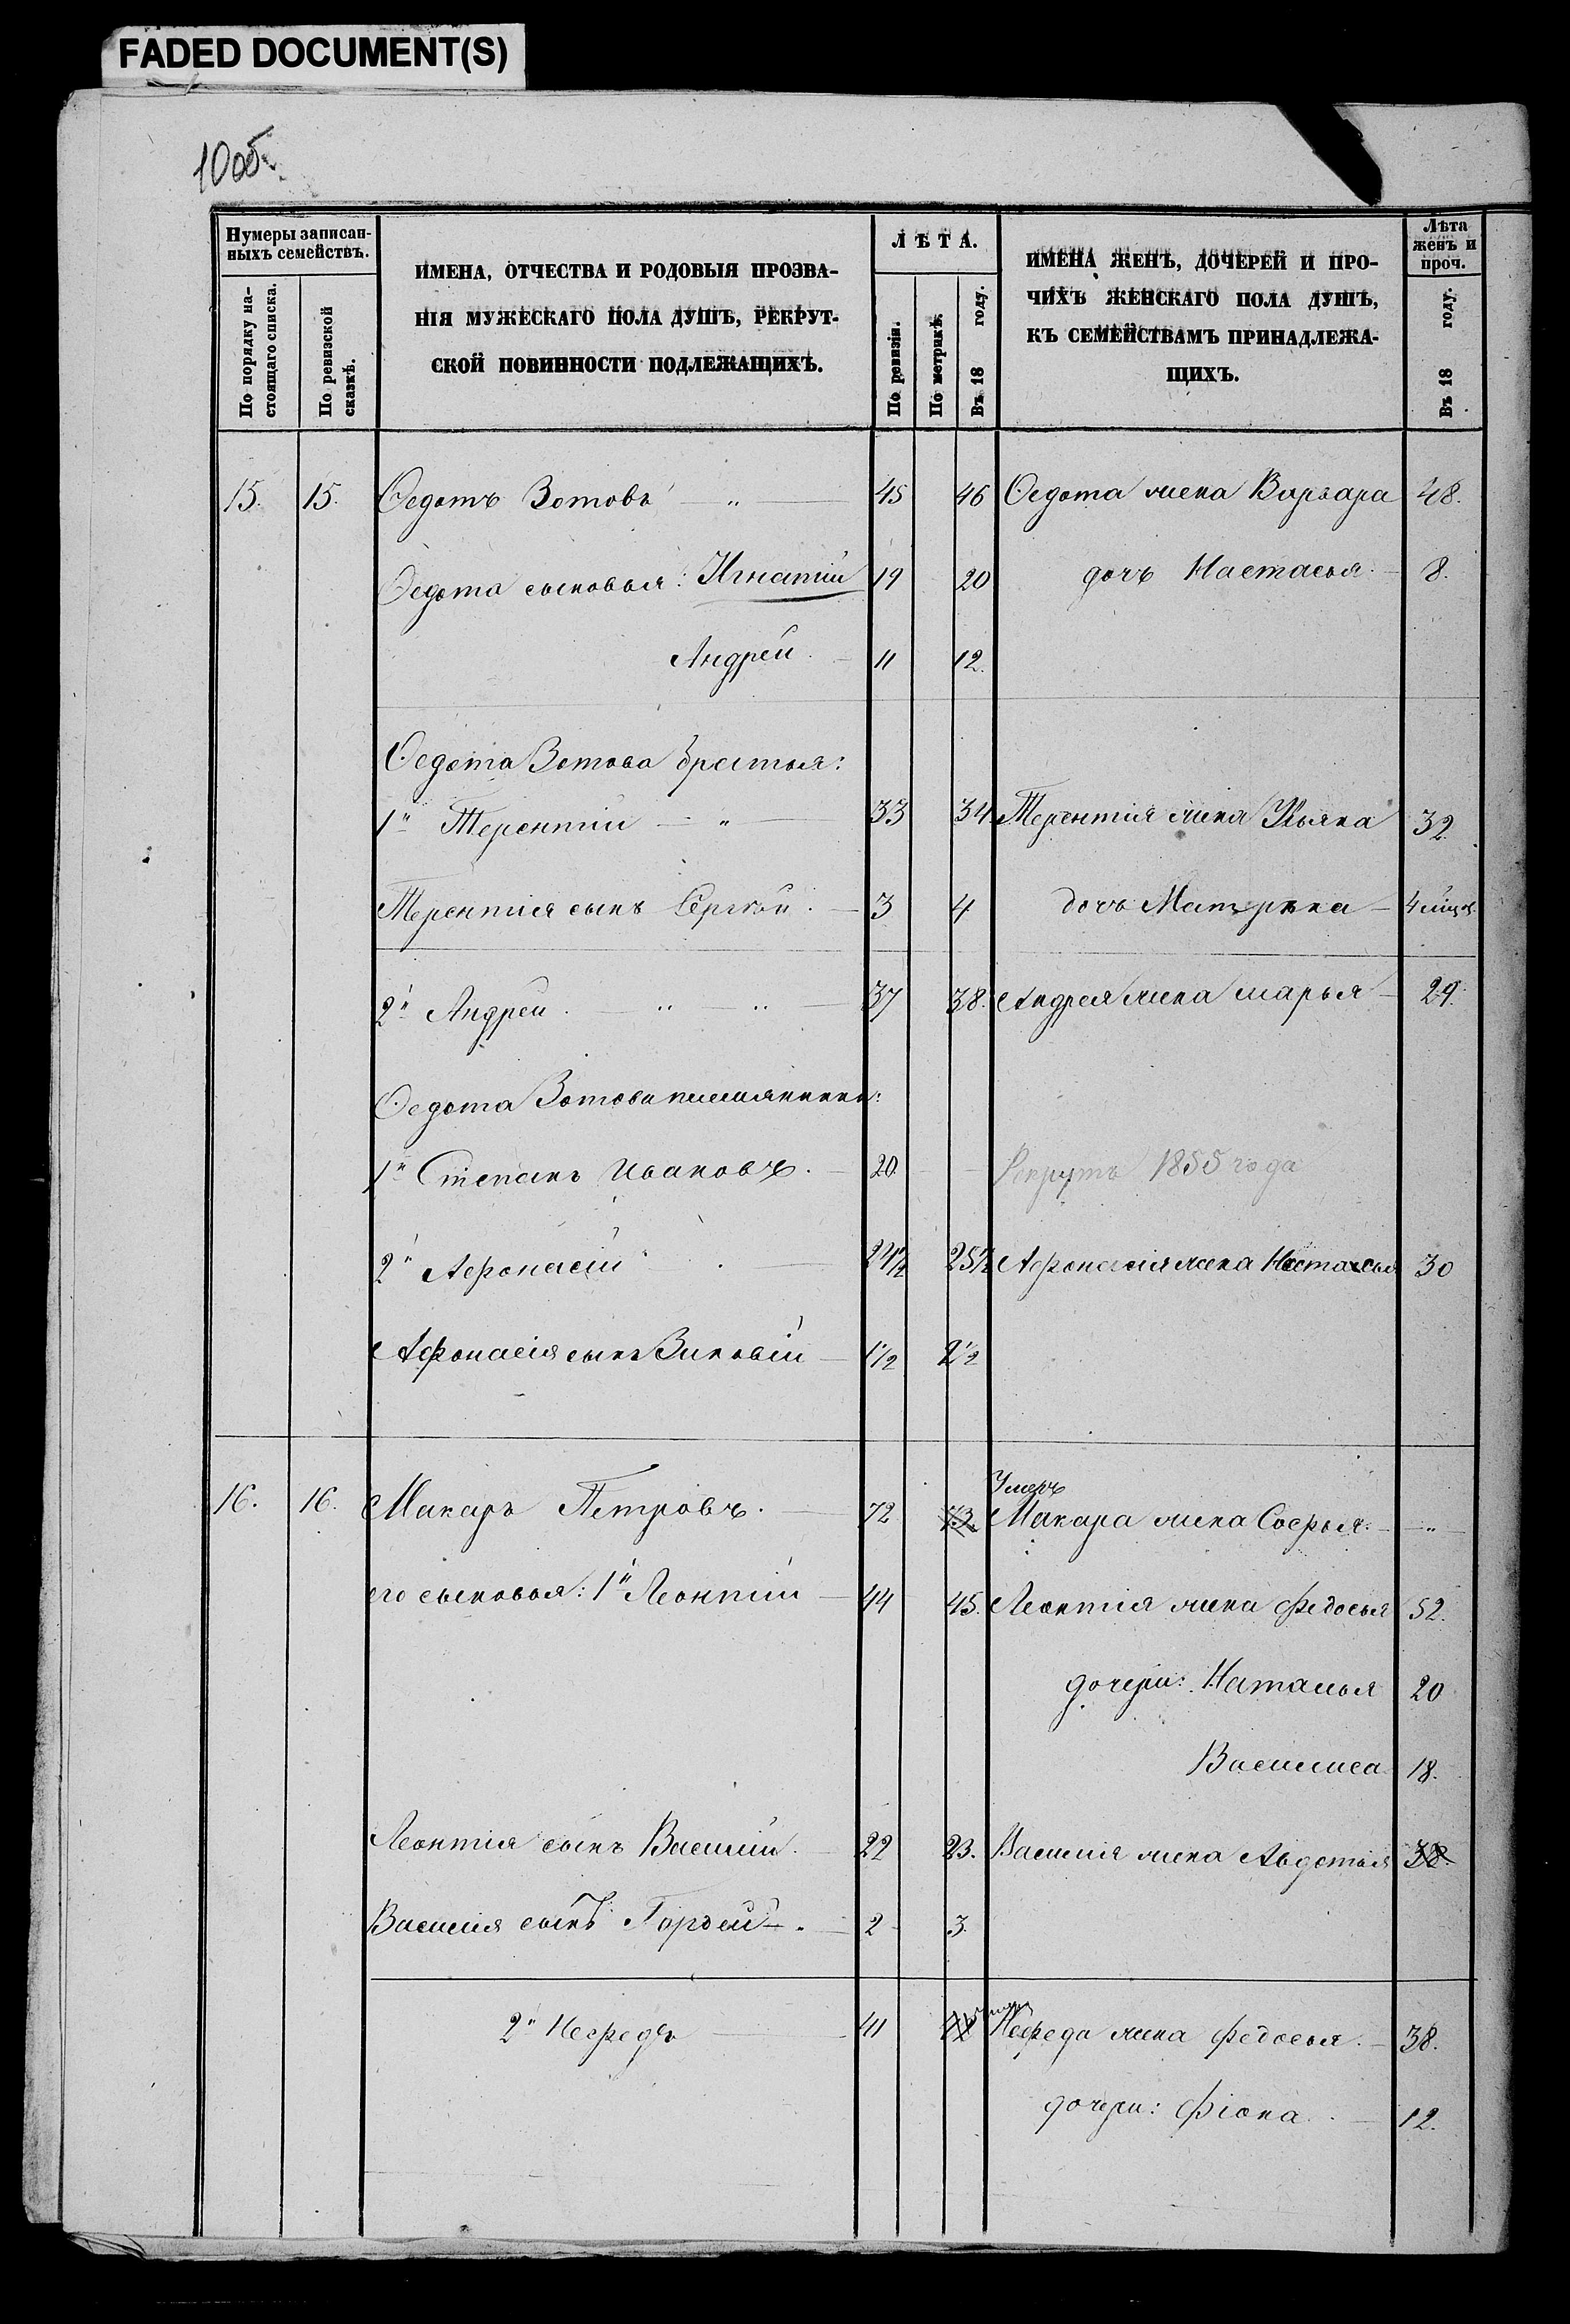 FADED DOCUMENT(S)
10об.
Нумеры записан-
ныхъ семействъ.
По порядку на-
стоящаго списка.
По ревизской
сказкѣ.
ИМЕНА, ОТЧЕСТВА И РОДОВЫЯ ПРОЗВА-
НІЯ МУЖЕСКАГО ПОЛА ДУШЪ, РЕКРУТ-
СКОЙ ПОВИННОСТИ ПОДЛЕЖАЩИХЪ.
ЛѢТА.
По ревизіи.
По метрикѣ.
Въ 18 году.
ИМЕНА ЖЕНЪ, ДОЧЕРЕЙ И ПРО-
ЧИХЪ ЖЕНСКАГО ПОЛА ДУШЪ,
КЪ СЕМЕЙСТВАМЪ ПРИНАДЛЕЖА-
ЩИХЪ.
Лѣта
женъ и
проч.
Въ 18 году.
15. 15. Ѳедотъ Зотовъ " 45 46 Ѳедота жена Варвара 48.
Ѳедота сыновья: Игнатій 19 20 дочь Настасья 8.
Андрей 11 12.
Ѳедота Зотова братья:
1й Терентій " 33 34 Терентія жена Ульяна 32.
Терентія сынъ Сергѣй 3 4 дочь Матрена 4 мѣсяц.
2й Андрей " " 37 38. Андрея жена Марья 29.
Ѳедота Зотова племянники:
1й Степанъ Ивановъ. 20. Рекрутъ 1855 года
2й Афонасій 24½ 25½ Афонасія жена Настасья 30
Афонасія сынъ Зиновій 1½ 2½
16. 16. Макаръ Петровъ. 72 73. Умеръ
Макара жена Софья. "
его сыновья: 1й Леонтій 44 45. Леонтія жена Федосья 52.
дочери: Наталья 20
Василиса 18.
Леонтія сынъ Василій. 22 23. Василія жена Авдотья
Василія сынъ Гордей 2 3.
2й Нефедъ 41 Нефеда жена Федосья. 38.
дочери: Фіона. 12.